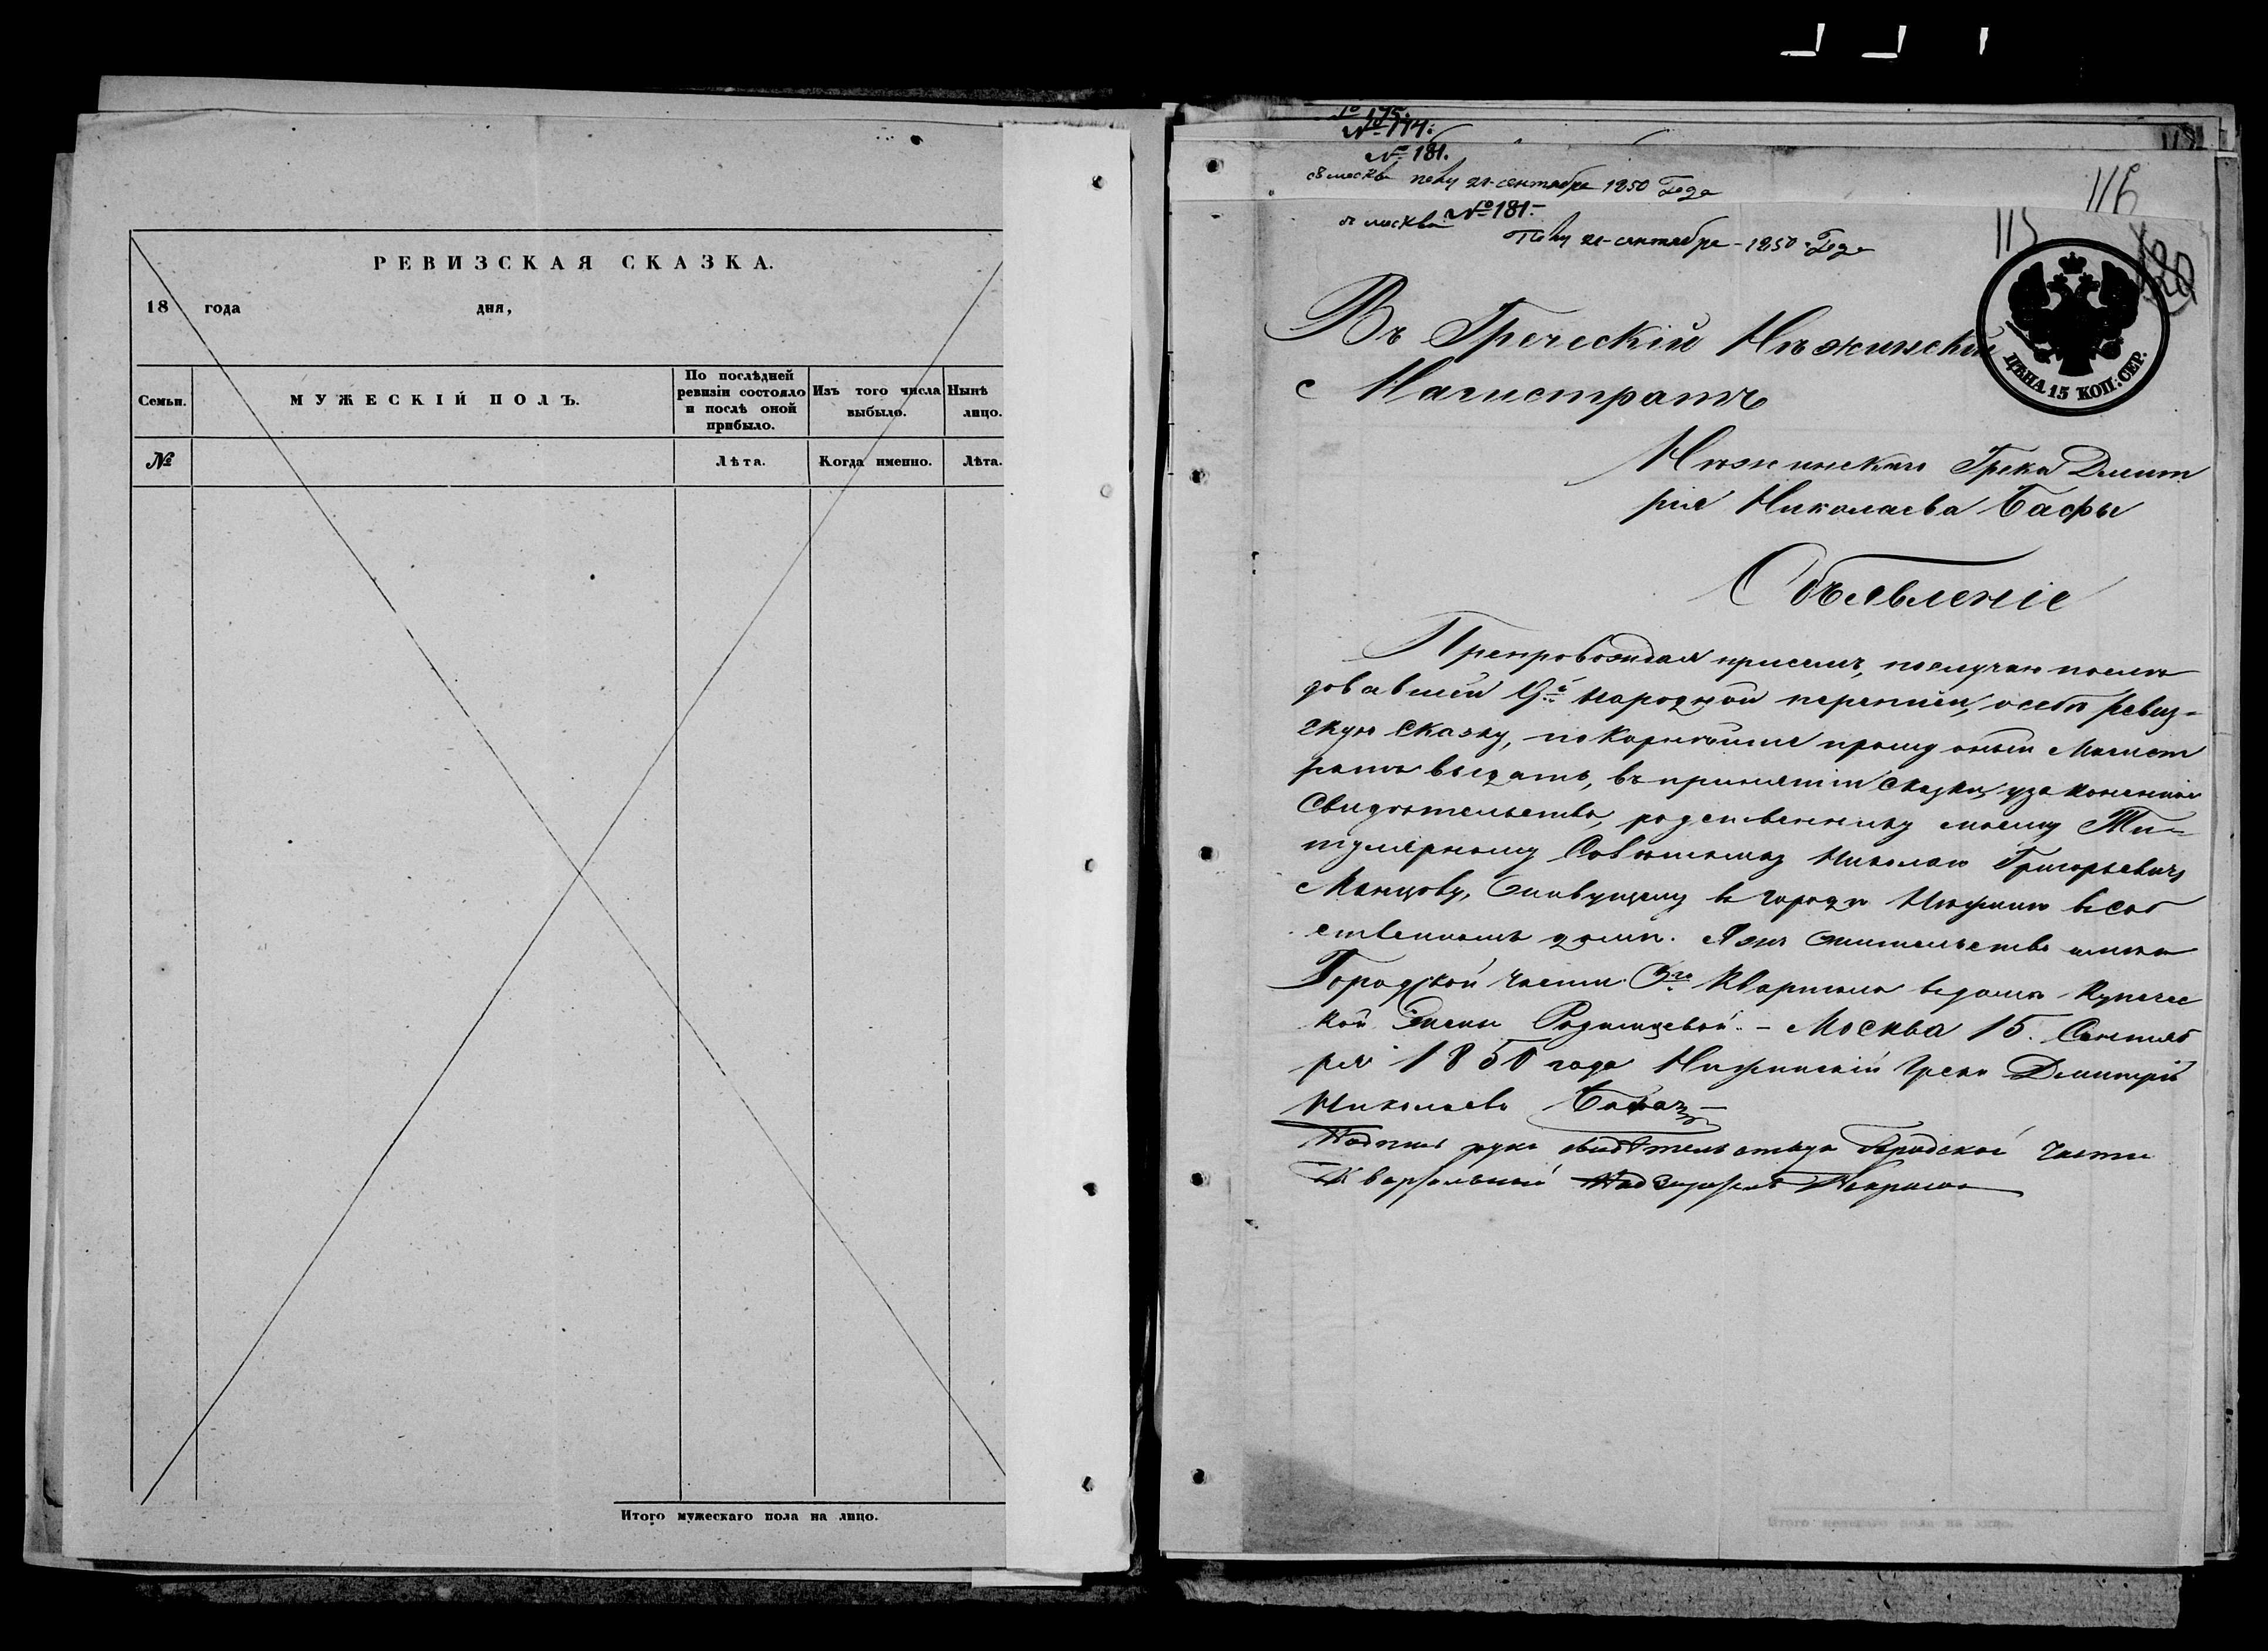 РЕВИЗСКАЯ СКАЗКА.
18 года дня,
Семьи.
МУЖЕСКІЙ ПОЛЪ.
По послѣдней
ревизіи состояло
и послѣ оной
прибыло.
Изъ того числа
выбыло.
Нынѣ
лицо.
№
Лѣта.
Когда именно.
Лѣта.
Итого мужескаго пола на лицо.
№ 174.
№ 181.
21 сентября 1850 Года
116
№ 181.
москва
21 сентября 1850 Года
115
ЦѢНА 15 КОП: СЕР.
Въ Греческій Нѣжинскій
Магистратъ
Нѣжинскаго Грека Дмит
рія Николаева Бафы
Объявленіе
Препровождая присемъ, послучаю послѣ
довавшей 9й народной переписи, о себѣ Ревиз-
скую Сказку, покорнѣйше прошу оный Магист
ратъ выдать, въ принятіи Сказки, узаконенное
Свидѣтельство, родственнику моему Ти-
тулярному Совѣтнику Николаю Григорьевичу
Манцову, Живущему въ городѣ Нѣжинѣ въ соб
ственномъ домѣ. Я же Жительство имѣю
Городской части 3го Квартала въ домѣ Купечес
кой Жены Родионцевой. - Москва 15. Сентяб
ря 1850 года Нѣжинскій Грекъ Дмитрій
Николаевъ Бафа
руки свидѣтельствую Городской Части
Квартальный Надзиратель
Итого мужескаго пола на лицо.